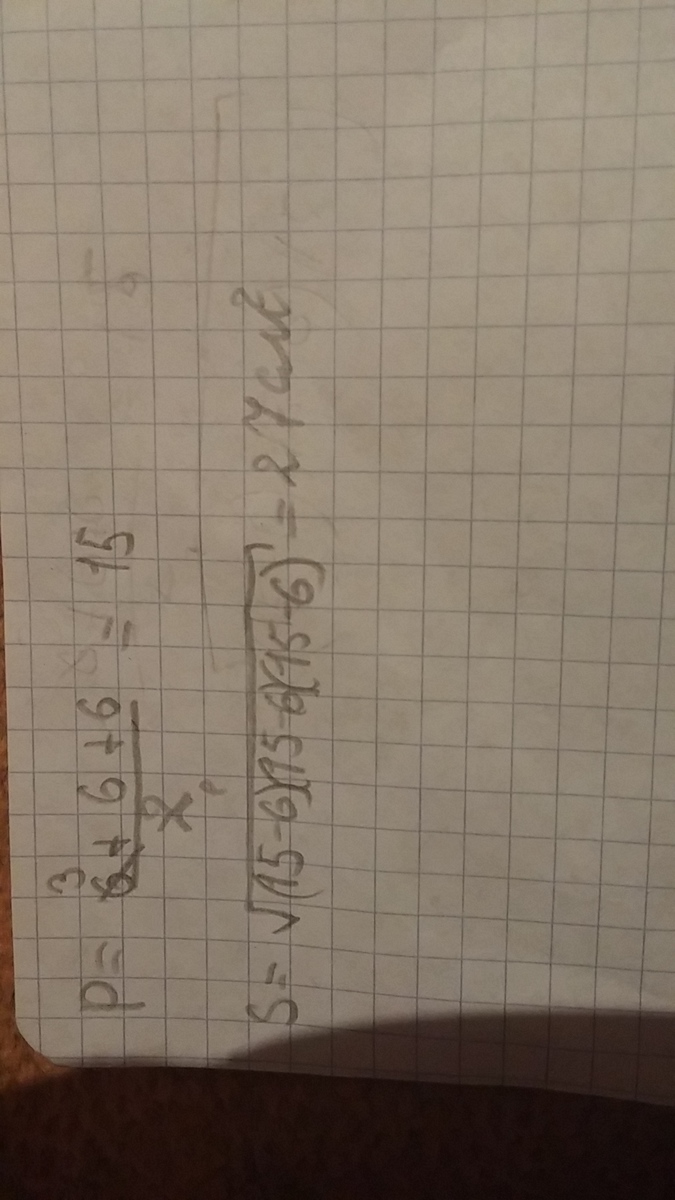 P = 3 6 + 6 + 6 / 2 = 15
S = √(15-6)(15-6)(15-6) = 27 см²